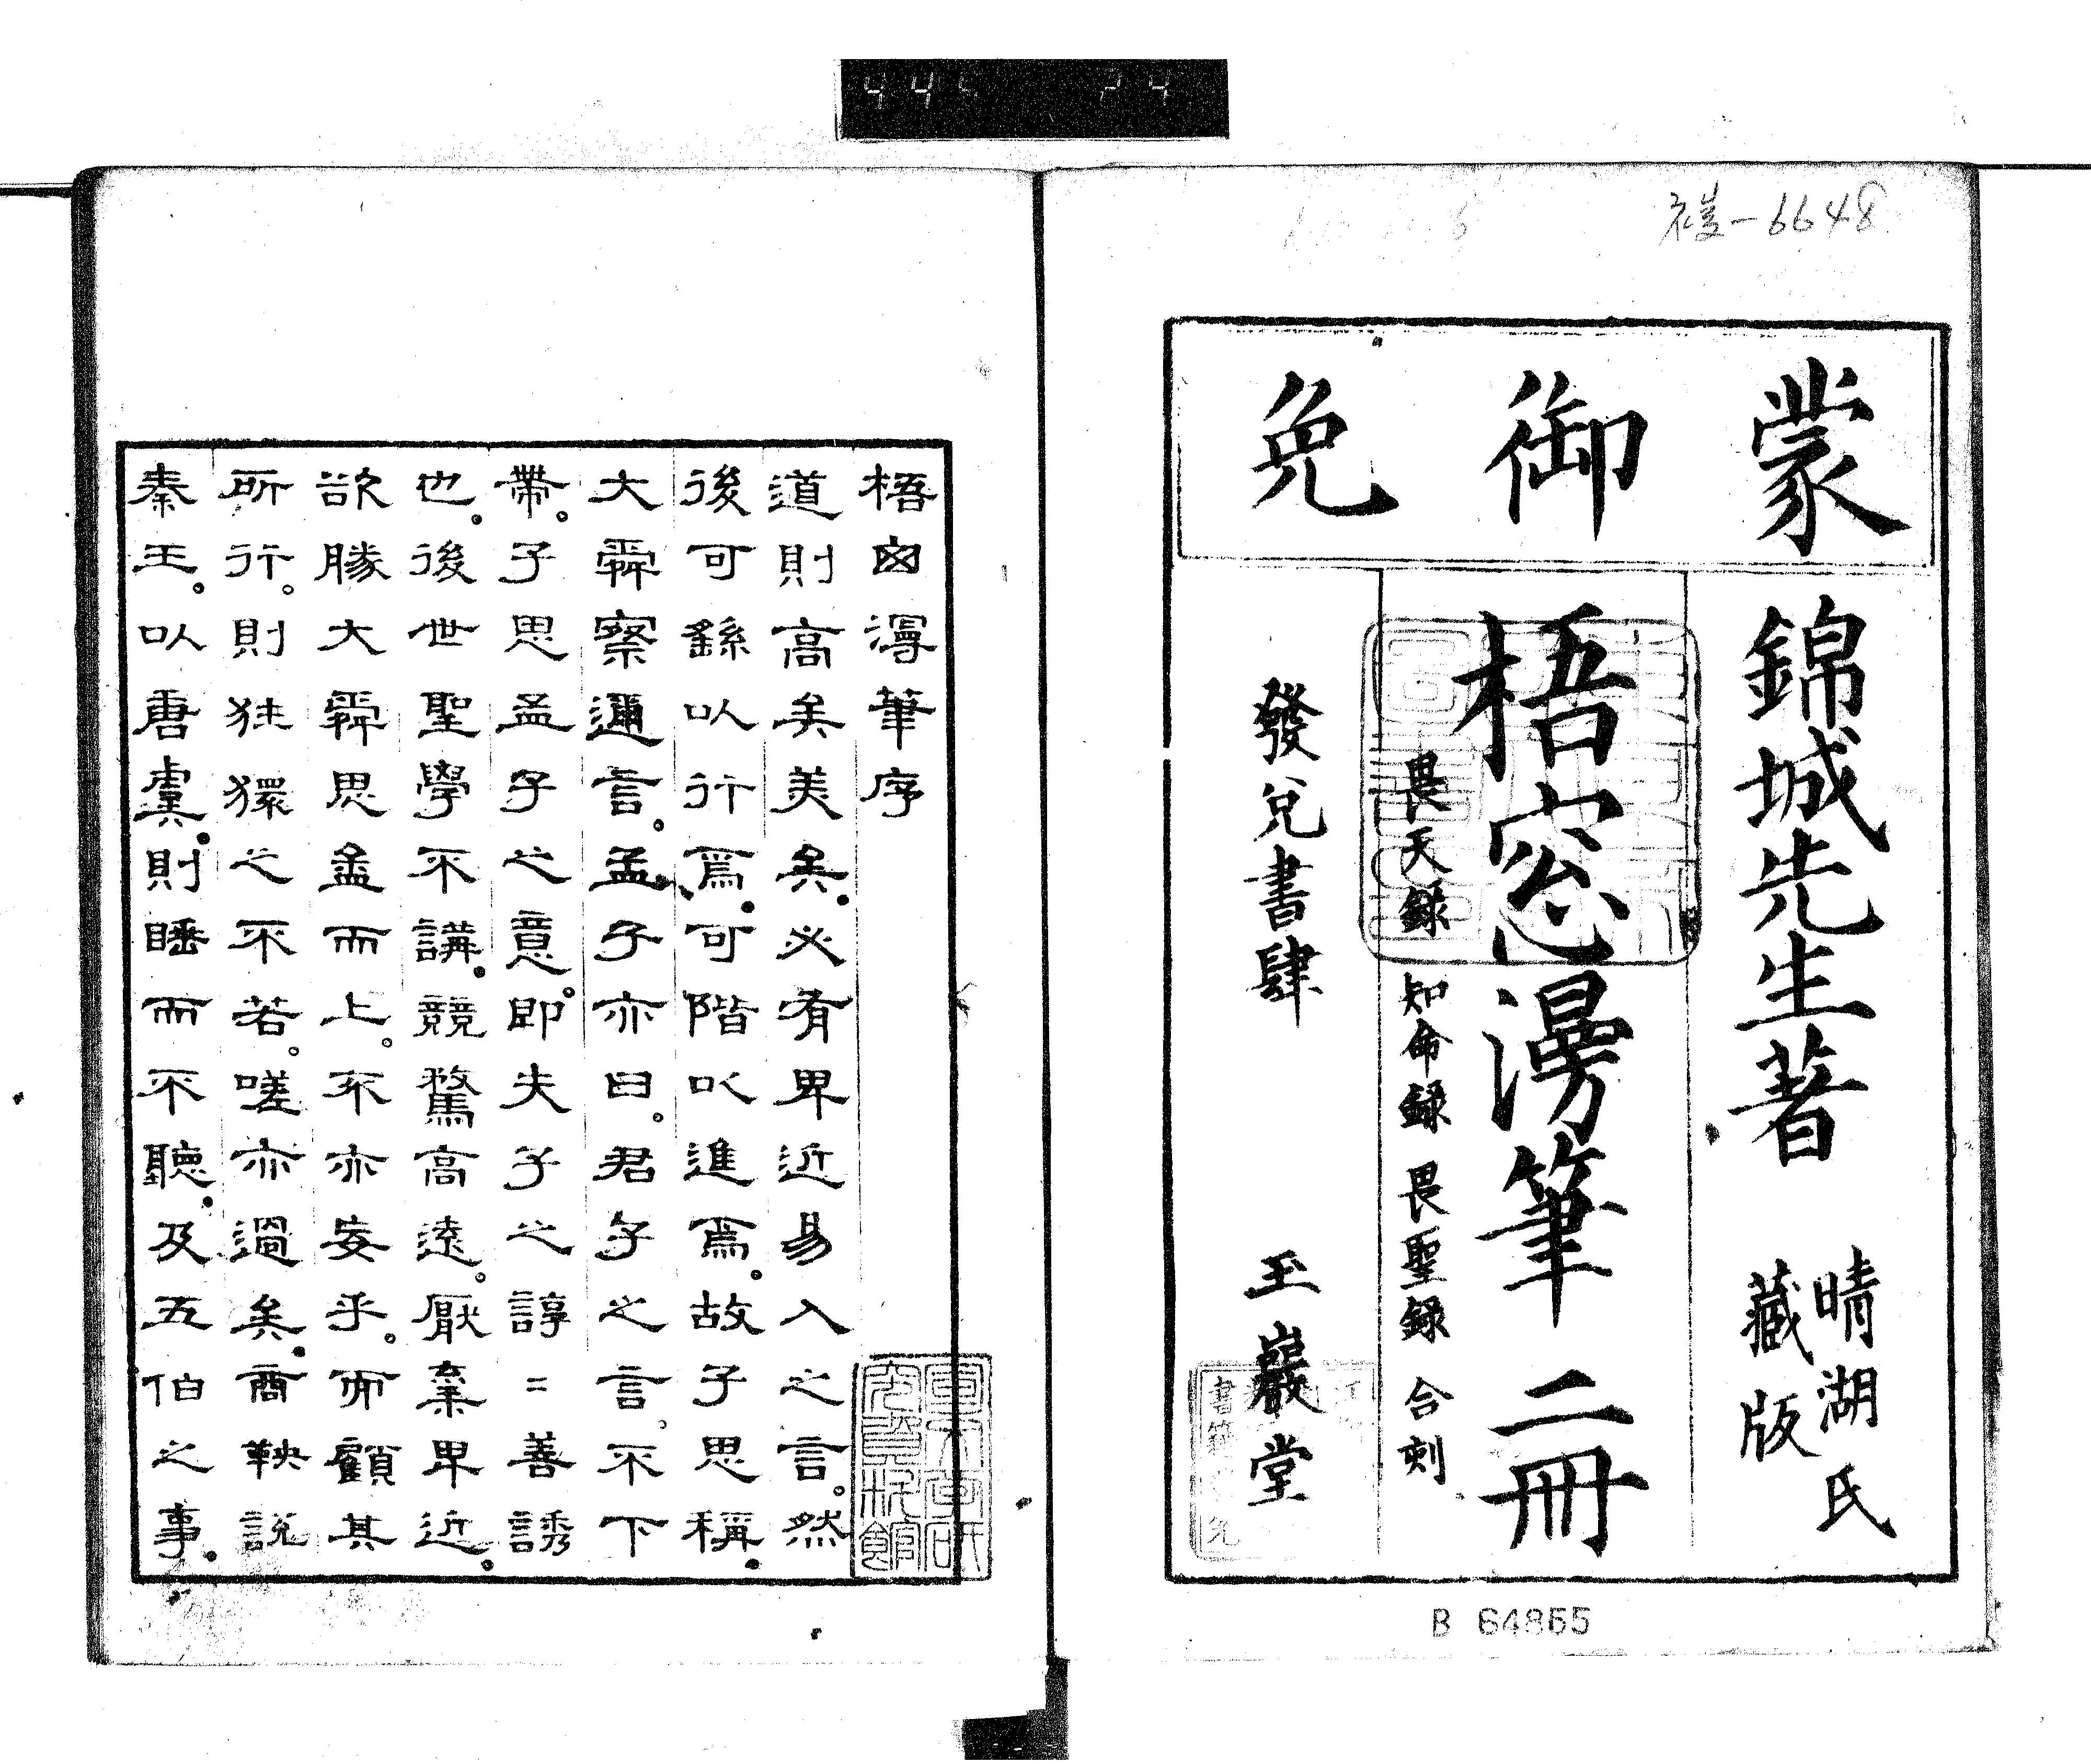 445 24
6648
蒙御免
錦城先生著
晴湖氏
藏版
梧窓漫筆 二冊
畏天錄 知命錄 畏聖錄 合刻
發兌書肆 玉巖堂
B 64865
梧囪漫筆序
道則高矣美矣必有卑近易入之言然
後可繇以行焉可階以進焉故子思稱
大舜察邇言孟子亦曰君子之言不下
帶子思孟子之意即夫子之諄〻善誘
也後世聖學不講競騖高遠厭棄卑近
欲勝大舜思孟而上不亦妄乎而顧其
所行則狂獧之不若嗟亦過矣商鞅說
秦王以唐虞則睡而不聽及五伯之事